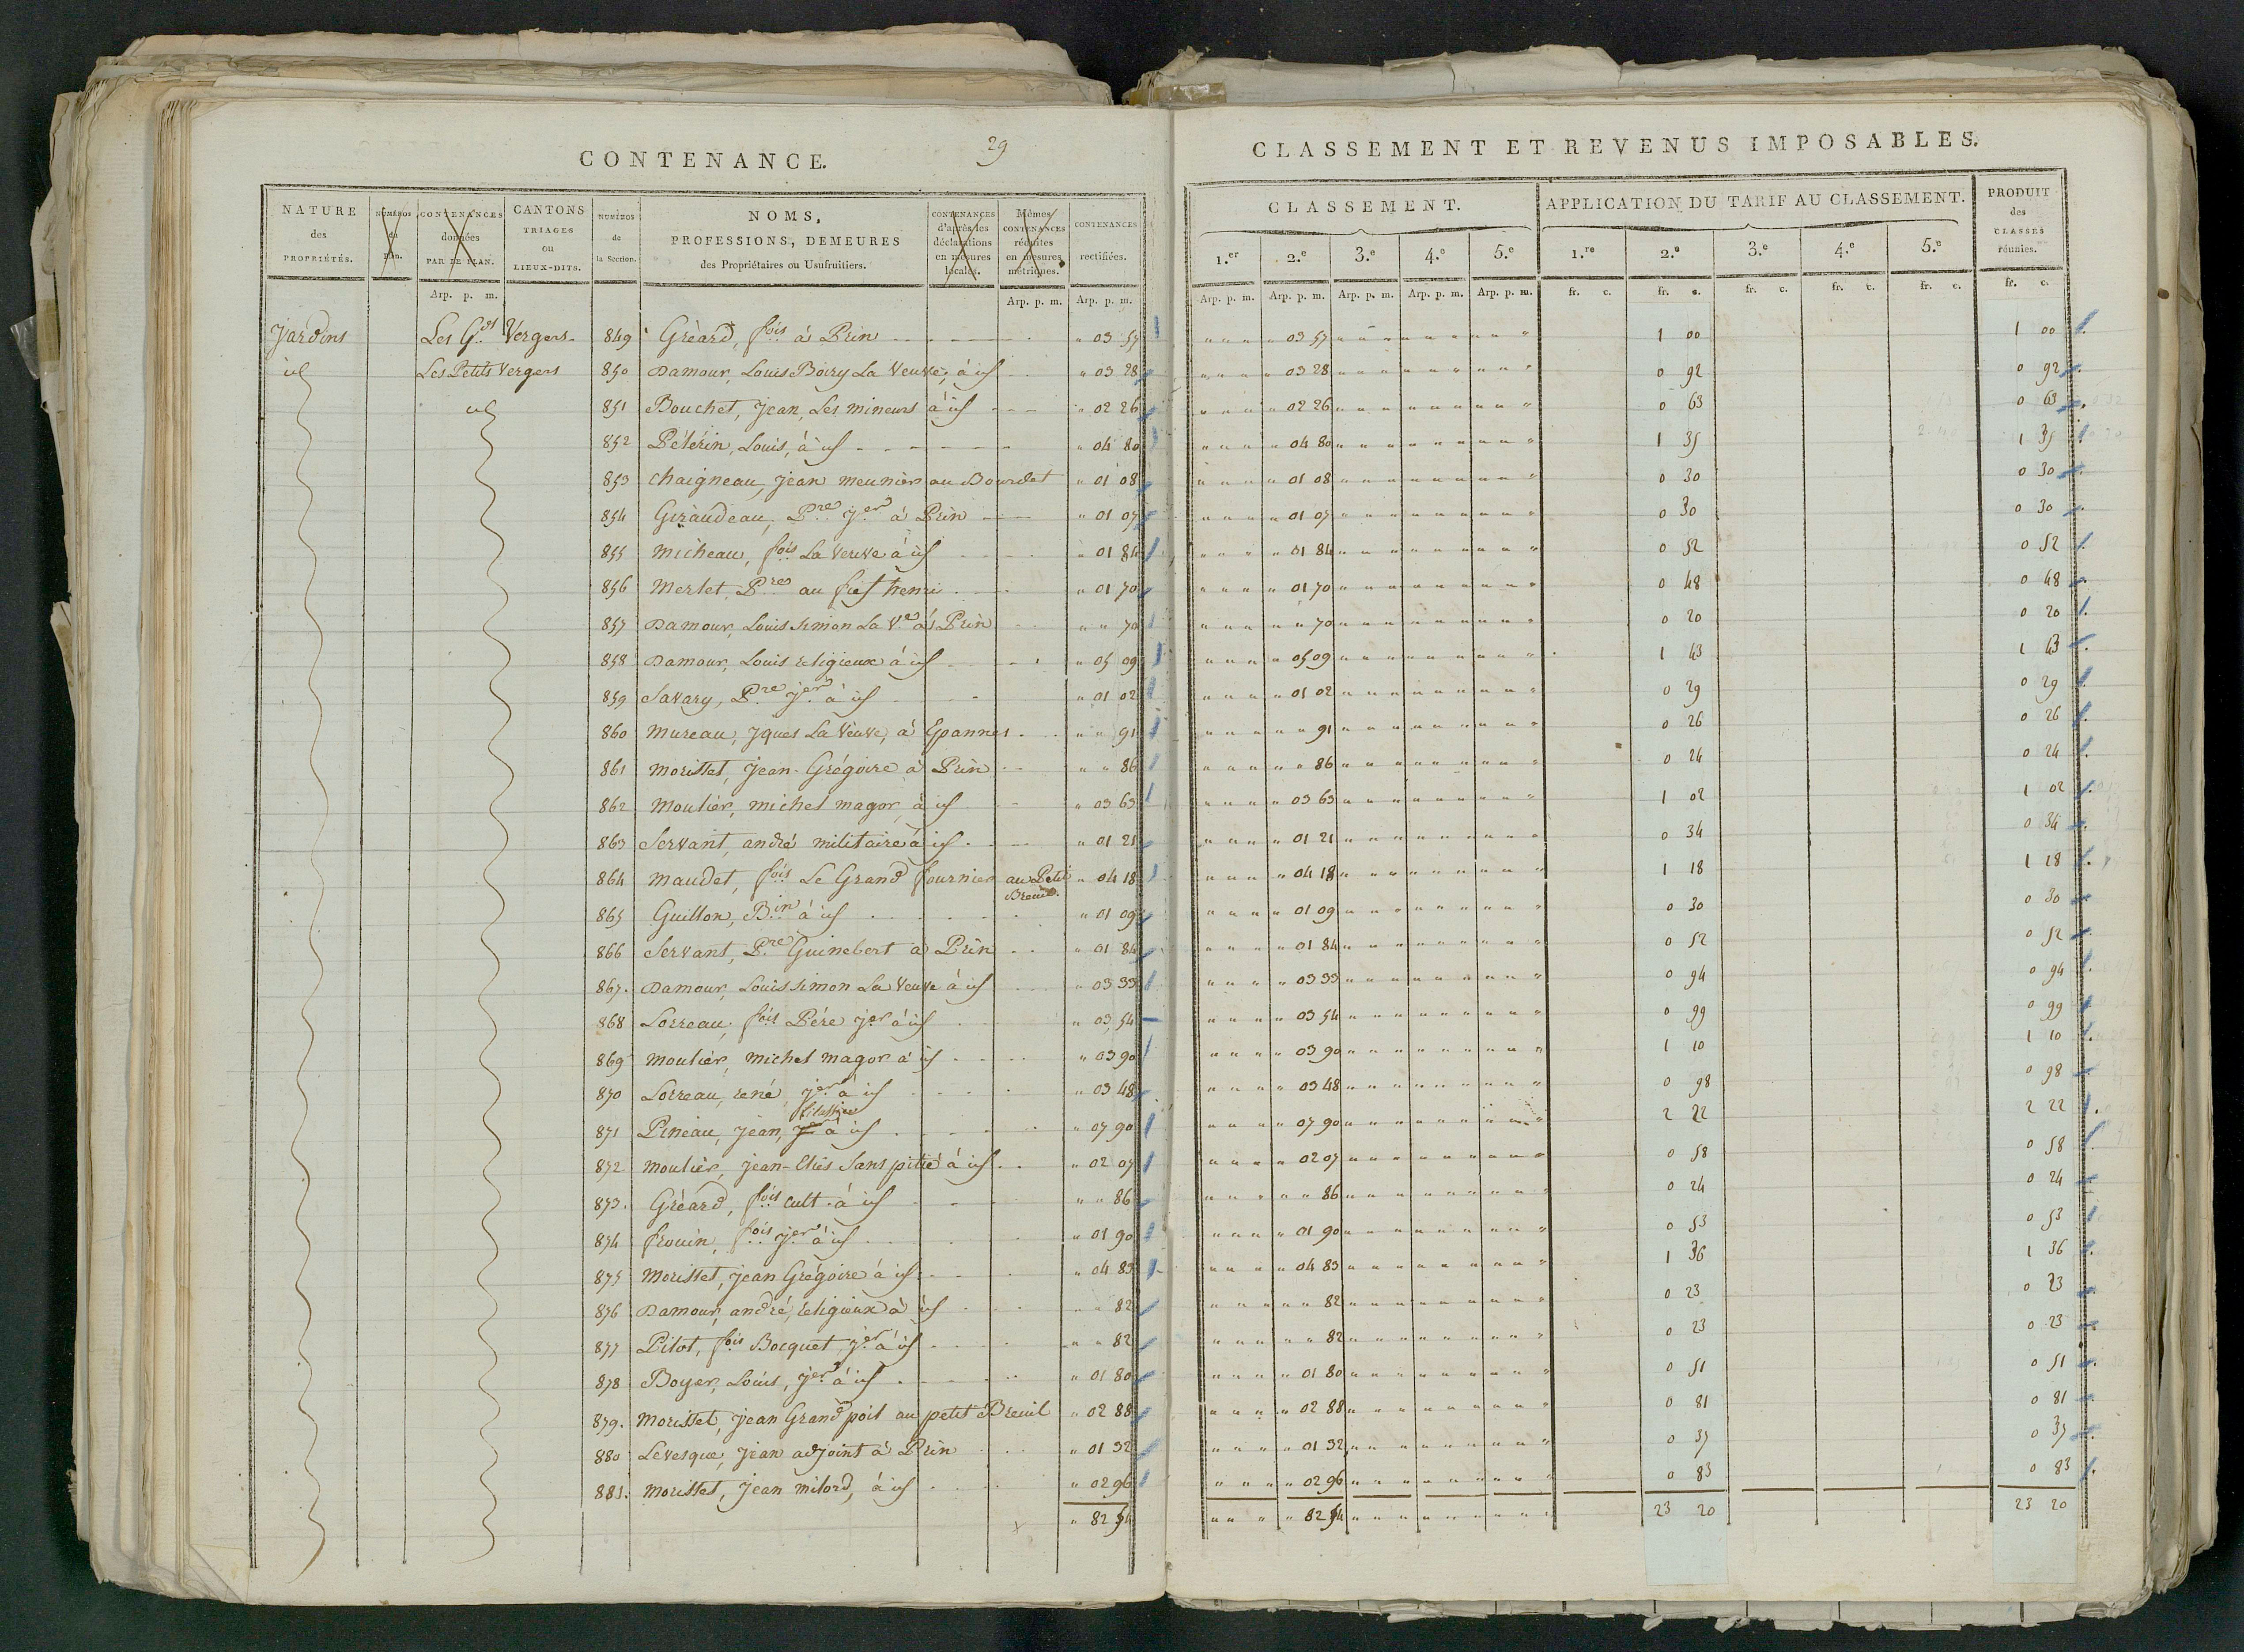 CONTENANCE.
29
NATURE des PROPRIÉTÉS.
NUMÉROS du Plan.
CONTENANCES données PAR LE PLAN.
CANTONS TRIAGES ou LIEUX-DITS.
NUMÉROS de la Section.
NOMS, PROFESSIONS, DEMEURES des Propriétaires ou Usufruitiers.
CONTENANCES d'après les déclarations en mesures locales.
Mêmes CONTENANCES réduites en mesures métriques.
CONTENANCES rectifiées.
Arp. p. m. Arp. p. m. Arp. p. m.
Jardins Les G.ds Vergers 849 Gréard, f.ois à Prin " 03 57
id Les Petits Vergers 850 Damour, Louis Boiry La Veuve, à id " 03 28
id 851 Bouchet, Jean, Les mineurs à id " 02 26
852 Pélérin, Louis, à id " 04 80
853 Chaigneau, Jean meunier au Bourdet " 01 08
854 Giraudeau, P.re j.er à Prin " 01 07
855 Micheau, f.ois La Veuve à id " 01 84
856 Merlet P.re au fief henri " 01 70
857 Damour, Louis Simon La V.e à Prin " " 70
858 Damour, Louis religieux à id " 05 09
859 Savary, P.re j.er à id " 01 02
860 Mureau, Jques La Veuve, à Epannes " " 91
861 Morisset, Jean-Grégoire à Prin " " 86
862 Moulier, michel magor à id " 03 63
863 Servant, andré militaire à id " 01 21
864 Maudet, f.ois Le Grand fournier au Petit Breuil. " 04 18
865 Guillon, B.in à id " 01 09
866 Servant, P.re Guinebert à Prin " 01 84
867. Damour, Louis Simon La Veuve à id " 03 33
868 Lorreau, f.ois Père j.er à id " 03 54
869 Moulier, michel magor à id " 03 90
870 Lorreau, rené, j.er à id " 03 48
871 Pineau, Jean, à id " 07 90
872 Moulier, Jean-Elies Sans pitié à id " 02 07
873. Gréard, f.ois cult. à id " " 86
874 frouin, f.ois j.er à id " 01 90
875 Morisset, Jean Grégoire à id " 04 83
876 Damour, andré, religieux à id " " 82
877 Pitot, f.ois Bocquet, j.er à id " " 82
878 Boyer, Louis, j.er à id " 01 80
879. Morisset, Jean Grand poil au petit Breuil " 02 88
880 Levesque, Jean adjoint à Prin " 01 32
881. Morisset, Jean milord, à id " 02 96
" 82 54
CLASSEMENT ET REVENUS IMPOSABLES.
CLASSEMENT. APPLICATION DU TARIF AU CLASSEMENT. PRODUIT des CLASSES réunies.
1.er 2.e 3.e 4.e 5.e 1.re 2.e 3.e 4.e 5.e
Arp. p. m. Arp. p. m. Arp. p. m. Arp. p. m. Arp. p. m. fr. c. fr. c. fr. c. fr. c. fr. c. fr. c.
" 03 57 1 00 1 00
" 03 28 0 92 0 92
" 02 26 0 63 0 63
" 04 80 1 35 1 35
" 01 08 0 30 0 30
" 01 07 0 30 0 30
" 01 84 0 52 0 52
" 01 70 0 48 0 48
" " 70 0 20 0 20
" 05 09 1 43 1 43
" 01 02 0 29 0 29
" " 91 0 26 0 26
" " 86 0 24 0 24
" 03 63 1 02 1 02
" 01 21 0 34 0 34
" 04 18 1 18 1 18
" 01 09 0 30 0 30
" 01 84 0 52 0 52
" 03 33 0 94 0 94
" 03 54 0 99 0 99
" 03 90 1 10 1 10
" 03 48 0 98 0 98
" 07 90 2 22 2 22
" 02 07 0 58 0 58
" " 86 0 24 0 24
" 01 90 0 53 0 53
" 04 83 1 36 1 36
" " 82 0 23 0 23
" " 82 0 23 0 23
" 01 80 0 51 0 51
" 02 88 0 81 0 81
" 01 32 0 37 0 37
" 02 96 0 83 0 83
" 82 54 23 20 23 20